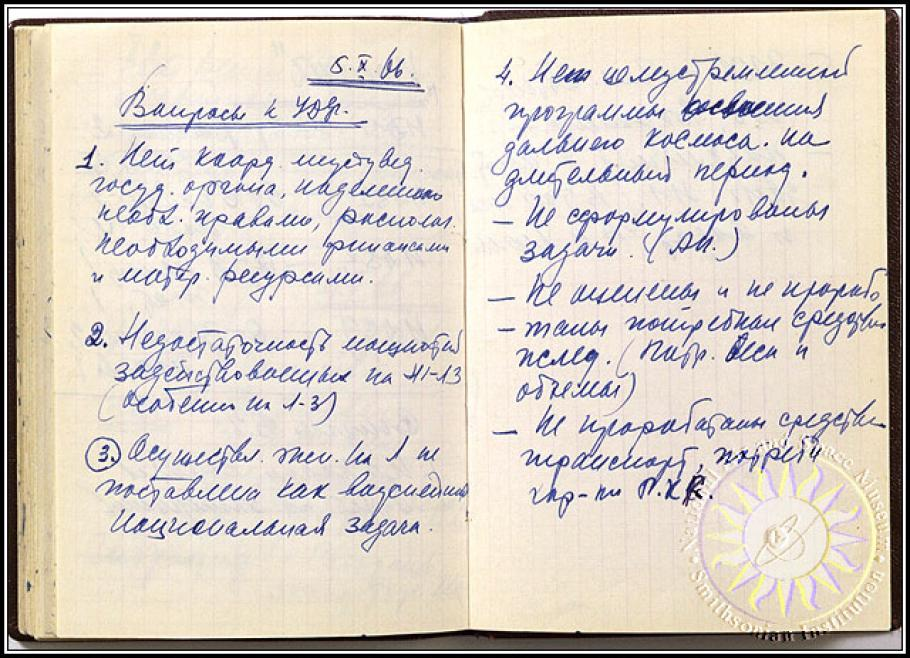 5.X 66.
Вопросы к УДУ.
1. Нет коорд. междувед.
госуд. органа, наделенного
необх. правами, располаг.
необходимыми финансами
и матер. ресурсами.
2. Недостаточность мощностей
задействованных на Н1-Л3
(особенно на Л-3)
3. Осуществл. эксп. на Л не
поставлена как важнейшая
национальная задача.
4. Нет целеустремленной
программы освоения
дальнего космоса. на
длительный период.
— Не сформулированы
задачи. (АН.)
— Не оценены и не прорабо
— таны потребные средства
исслед. (Потр. веса и
объемы)
— Не проработаны средства
транспорт,
хар-ки
National Air and Space Museum
Smithsonian Institution